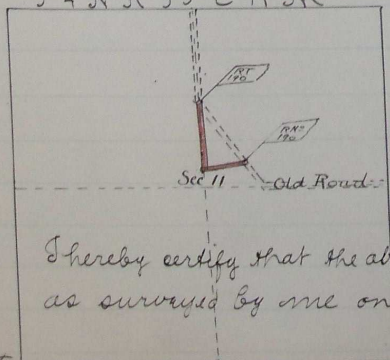 RT
190
RNo
190
Sec 11
Old Road
I hereby certify that the ab
as surveyed by me on